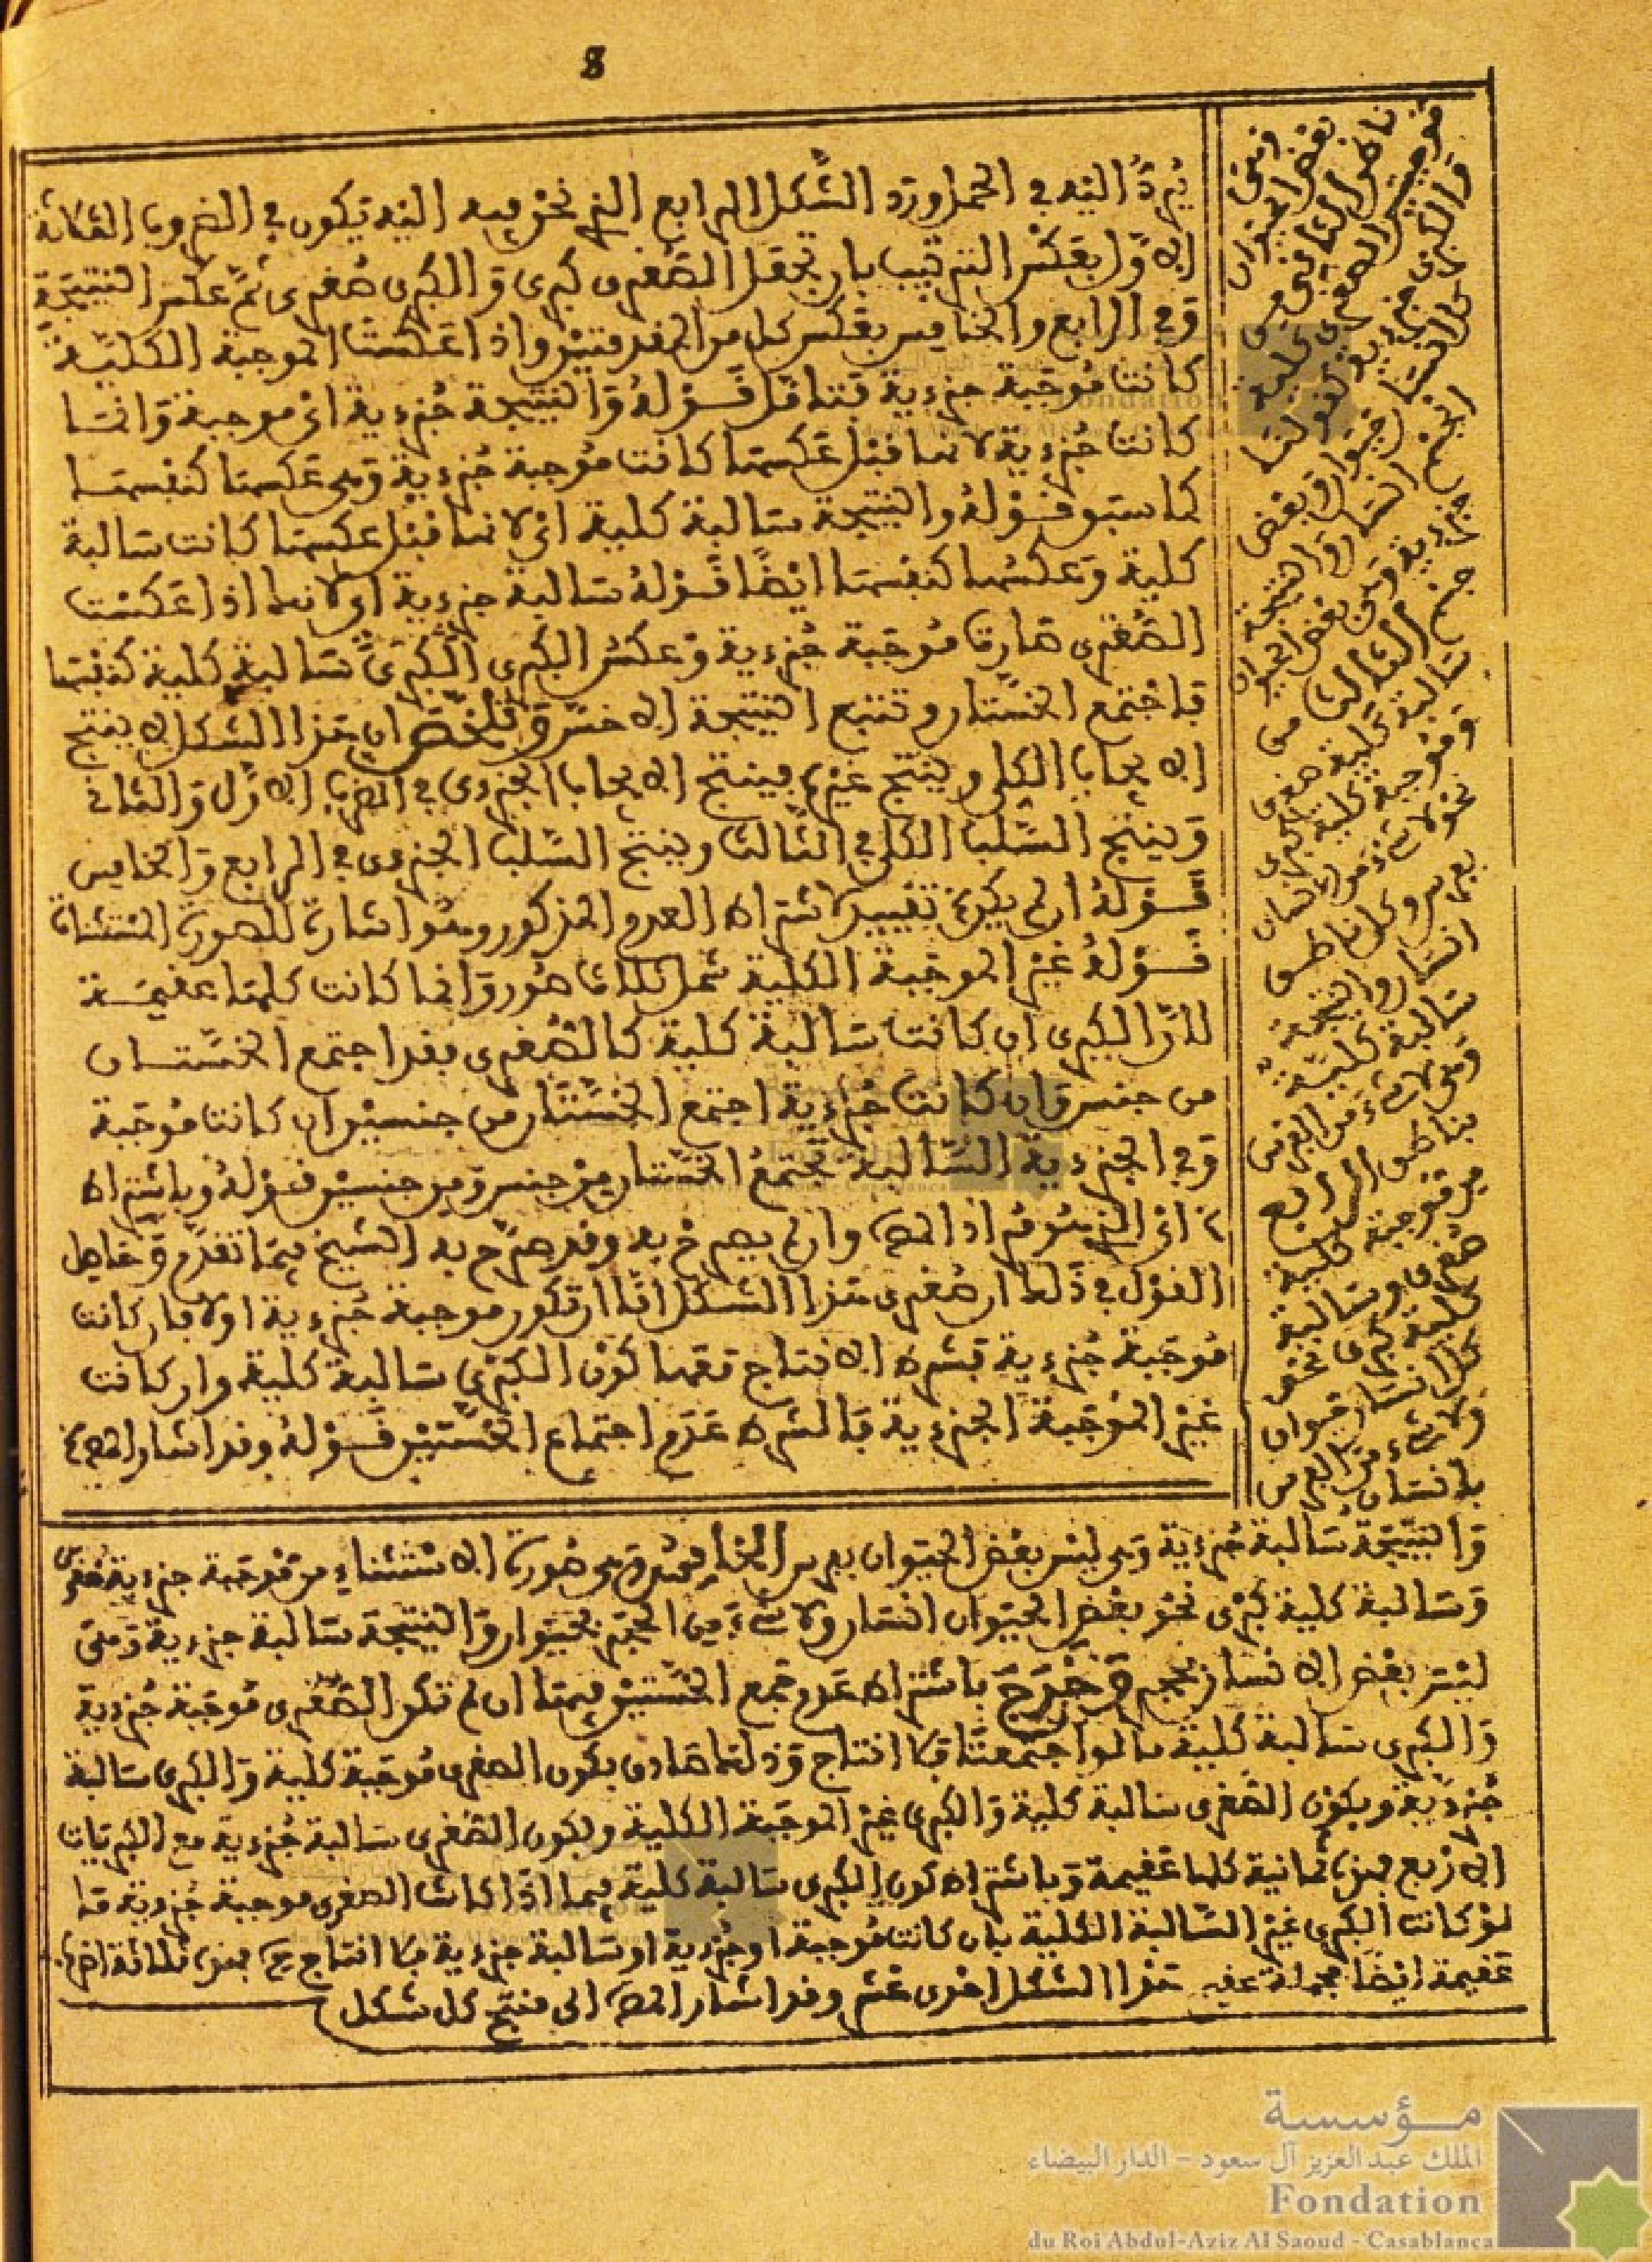 8
يُرَدُّ اليه في الحمل ورد الشَّكل الرابع الذي نحن فيه اليه تكون في الضروب الثلاثة
الاوَّل بعَكْس الترتيب بان تجعل الصُّغرى كبرى وَالكبرى صُغرى ثمَّ عكس النتيجَة
وَفي الرابع والخامِس بعَكس كل من المقدمتيْن واذا عَكستَ الموجبة الكليَّة
كانت مُوجَبة جزءية فتامَّل قَوْلهُ وَالنتيجة جُزءية ائ موجبة وَانما
كانت جُزءية لانها قبْل عَكسها كانت مُوجبة جُزءية وَهي عَكسها كنفسها
كما سبق قوْلهُ والنتيجة سَالبة كلية ائ لانها قبْل عكسها كانت سَالبة
كلية وَعكسُها كنفسها ايْضًا قَوْلهُ سَالبة جزءية اي لانها اذا عَكسْت
الصُّغرى صَارت مُوجَبة جُزءية وَعكسُ الكبرى الكبرَى سَالبة كلية كنفسها
فاجْتمع الخسَّتان وتتبع النتيجة الاخسّ وَتلخَّصَ ان هَذا الشكل لا ينتج
الايجاب الكلي وينتج غيْره فينتج الايجاب الجزءي في الضرب الاوَّل وَالثاني
وَينتج السَّلب الكلي في الثَّالث وينتج السَّلب الجزءي في الرابع وَالخامِس
قَوْلهُ ان لم يكن تقييد لاشتراط العدم المذكور وهُو اشارة للصورة المسْتثناة
قَوْلهُ غيْر الموجَبة الكلية شمل ثلاث صُور وَانما كانت كلها عقيمَة
لانَّ الكبرى ان كانت سَالبة كلية كالصُّغرى فقد اجتمع الخسَّتان
من جنس وَان كانت جُزءية اجتمع الخسَّتان من جنسيْن ان كانت مُوجَبة
وَفي الجزءية السَّالبة تجتمعُ الخسَّتان مِنْ جنس وَمن جنسيْن قوْلهُ وباشتراط
ائ الذي هُو مُراد المص وان لم يصرح به وقد صَرَّح به الشيخ فيمَا تقدَّم وَحَاصِل
القوْل في ذَلك ان صُغرى هَذا الشكل امَّا ان تكون موجبة جُزءية اولا فان كانت
مُوجَبة جُزءية فشرط الانتاج معَها كوْن الكبرى سَالبة كلية وان كانت
غيْر المُوجَبة الجزءية فالشرط عَدَم اجتماع الخسَّتيْن قَوْلهُ وقد اشار المص
وَهي
بعْض الحيَوان
ناطق الثاني من
مُوجَبتيْن الصغرى كلية
وَالكبرى جزءية كقولنَا
كل انسَان حيَوان وبَعْض
الجسْم انسَان وَالنتيجة
جزءية وَهي بعْض الحيوان
جسْم الثالث من
سَالبة كلية صغرى
وَمُوجبة كلية كبرى
نحو لاشيء من الانسان
بفرس وكل ناطق
انسَان وَالنتيجة
سَالبة كليَّة
وَهي لاشيء من الفرس
بناطق الرابع
من مُوجبة كلية
صُغرى وسَالبة
كلية كبرى نحو
كل انسَان حيَوان
ولاشيء من الفرس
بانسَان
وَالنتيجَة سَالبة جُزءية وَهي ليْسَ بعْض الحيَوان بفرس الخامِس من صُورة الاسْتثناءِ من مُوجَبة جزءية صُغرى
وَسَالبة كلية كبرَى نحْو بعْض الحيَوان انسَان ولاشيْءَ من الحجَر بحيَوان وَالنتيجَة سَالبة جزءية وَهيَ
ليْسَ بعْض الانسَان بحجر وَخَرَجَ باشتراط عَدم جَمع الخسَّتيْن فيمَا ان لم تكن الصُّغرى مُوجَبة جُزءية
وَالكبرى سَالبة كليَّة مَا لو اجتمعتَا فلا انتاج وَذلك صَادق بكون الصغرى مُوجَبة كلية وَالكبرى سَالبة
جُزءيَّة وبكوْن الصُّغرى سَالبة كلية وَالكبرى غيْر الموجَبة الكلية وبكون الصُّغرى سَالبة جُزءية مع الكبريَات
الارْبع فهذه ثمَانية كلها عَقيمة وَباشتراط كون الكبرى سَالبة كلية فيما اذا كانت الصغرى موجبة جُزءية مَا
لوْ كانت الكبرى غيْر السَّالبة الكلية بان كانت مُوجبة او جُزءية او سَالبة جزءية فلا انتاج فهذه ثلاثة اخرى
عَقيمة ايْضًا فجملة عقيم هَذا الشكل احْدى عَشر وقد اشار المص الى منتج كل شكل
مؤسسة
الملك عبد العزيز آل سعود - الدار البيضاء
Fondation
du Roi Abdul-Aziz Al Saoud - Casablanca